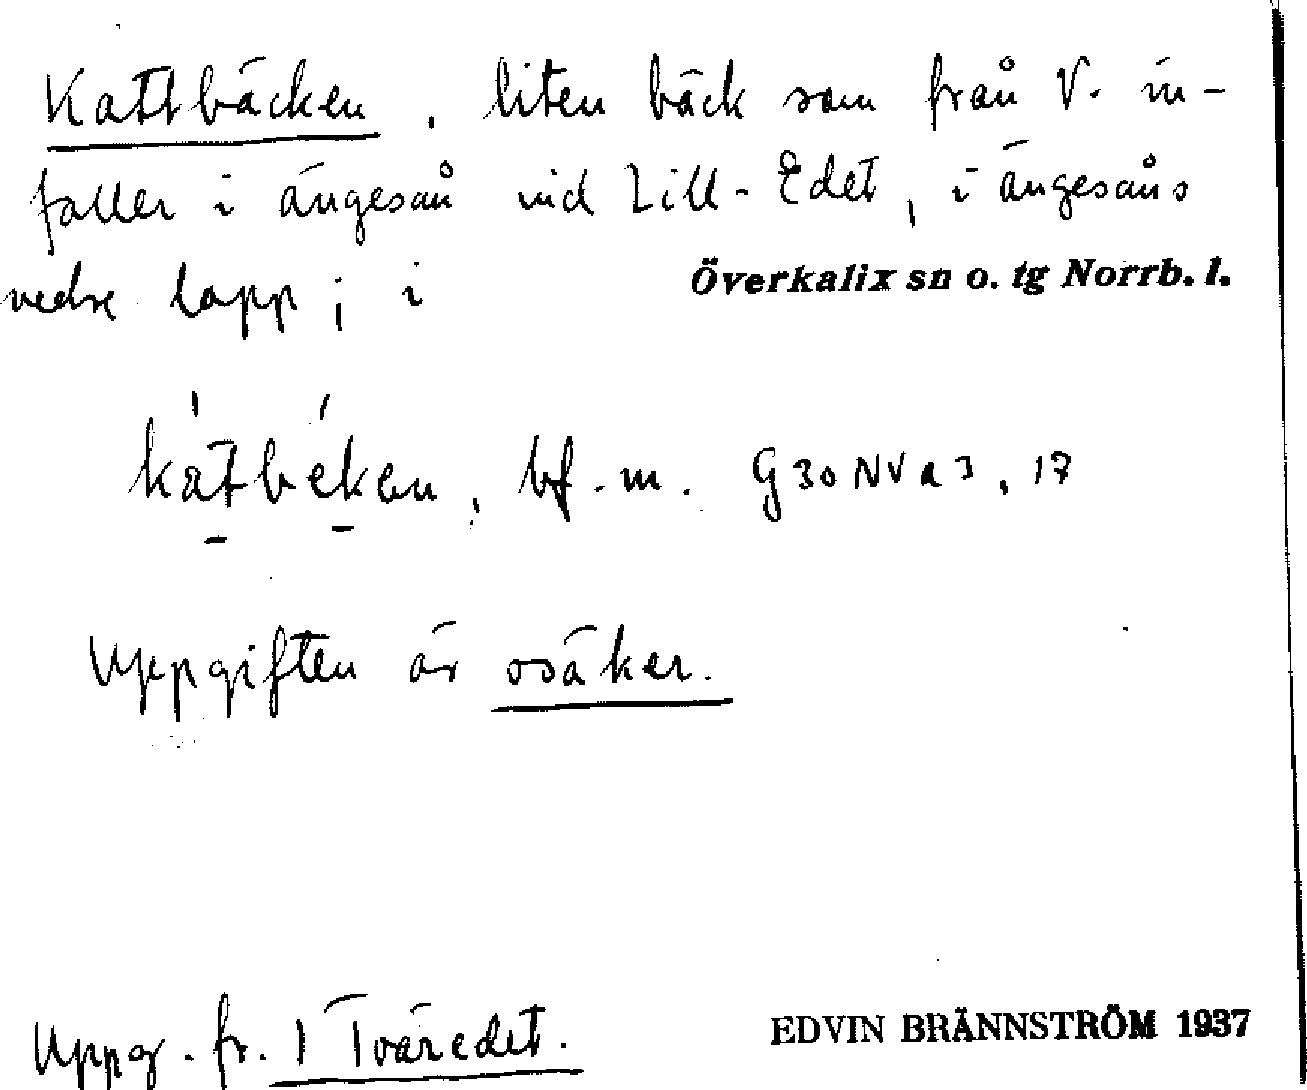 Kattbäcken, liten bäck som från V. in-
faller i ängesån vid Lill-Edet, i ängesåns
nedre lopp; i
Överkalix sn o. tg Norrb. l.
bf. m. G30NVa3, 17
Uppgiften är osäker.
Uppg. fr. 1 Tväredet.
EDVIN BRÄNNSTRÖM 1937